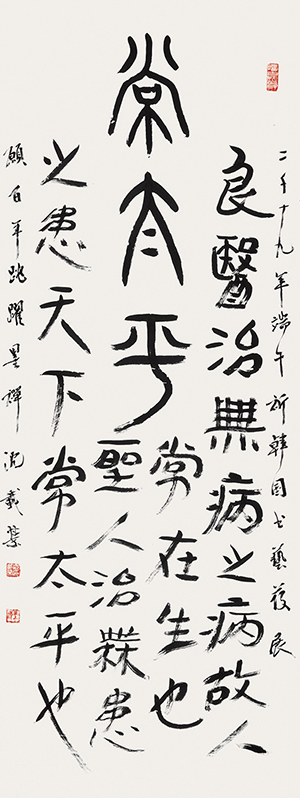 常太平
良醫治無病之病故人
常在生也
聖人治無患
之患天下常太平也
二千十九年端午祈韓國書藝發展
願百年跳躍 禪 沈載榮